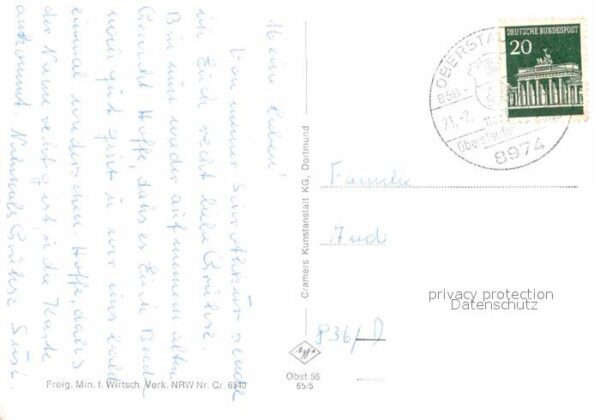 Meine Lieben!
Von meiner Schrothkur sende
ich Euch recht liebe Grüsse.
Bin nun wieder auf meinem alten
Gewicht. Hoffe, dass es Euch Beiden
noch gut geht u. wir uns bald
einmal wiedersehen. Hoffe, dass
der Name richtig ist, u. die Karte
ankommt. Nochmals Grüsse Susi.
Cramers Kunstanstalt KG, Dortmund
DEUTSCHE BUNDESPOST
20
OBERSTAU
21.-2.
Oberstaufen
8974
Familie
And
privacy protection
Datenschutz
836/D
Freig. Min. f. Wirtsch. Verk. NRW Nr. Cr. 6340
Obst 56
65/5